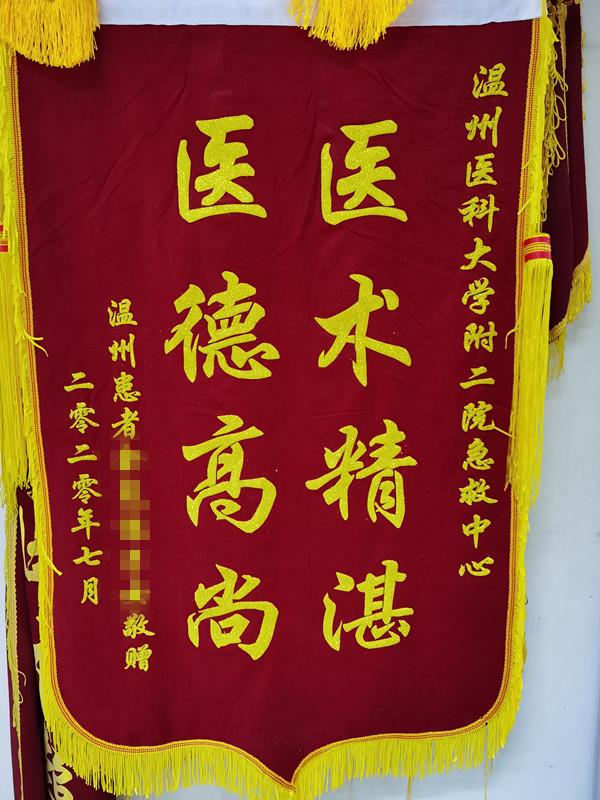 温州医科大学附二院急救中心
医术精湛
医德高尚
温州患者敬赠
二零二零年七月